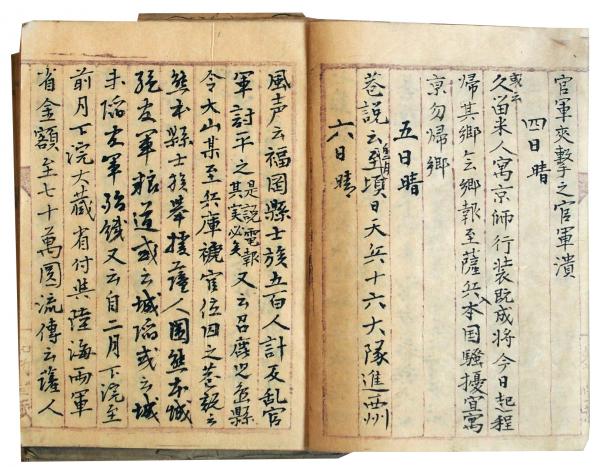 官軍夾撃之官軍潰
四日晴
或云
久留米人寓京師行装既成将今日起程
帰其郷会郷報至薩兵入本国騒擾宜寓
京勿帰郷
五日晴
巷説云至頃日天兵十六大隊進西州
六日晴
風声云福岡縣士族五百人計反乱官
軍討平之 是説電報其実必矣 又云召鹿児島縣
令大山某至兵庫褫官位囚之巷説云
熊本縣士族挙援薩人囲熊本城
絶友軍粮道或云城陥或云城
未陥友軍 又云自二月下浣至
前月下浣大蔵省付与陸海両軍
省金額至七十萬圓流傳云薩人